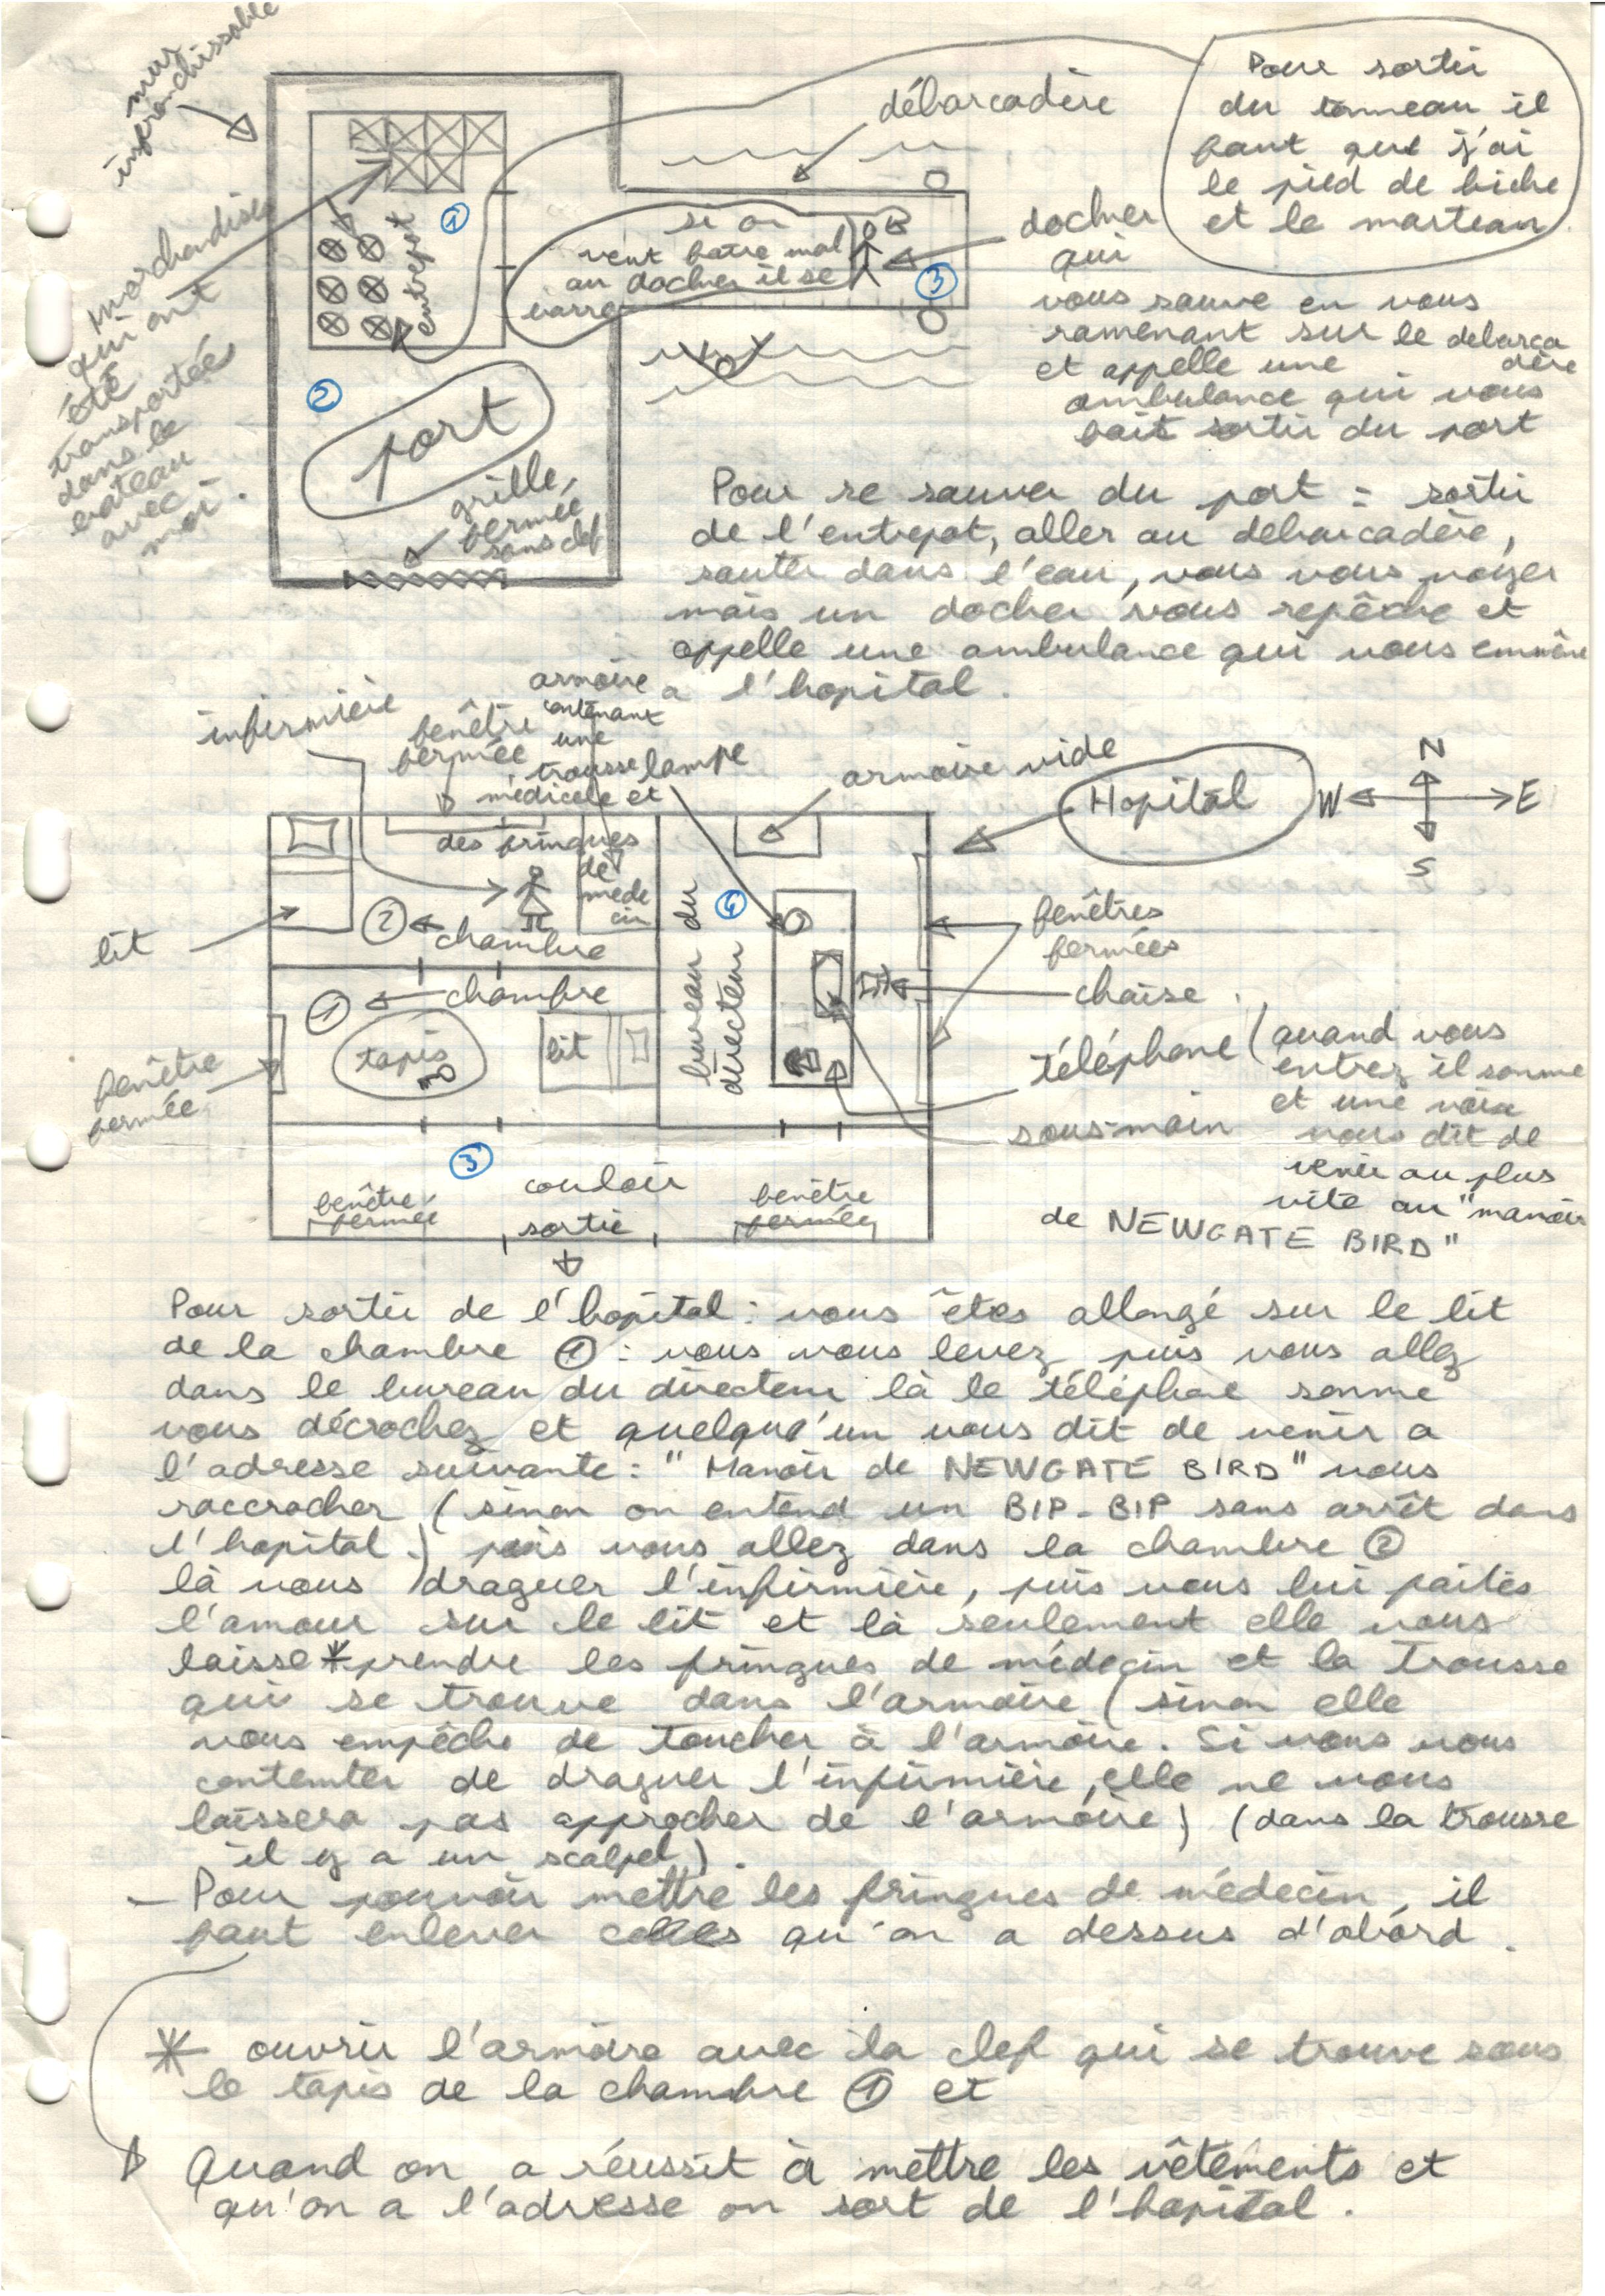 murs
infranchissable
débarcadère
Pour sortir
du tonneau il
faut que j'ai
le pied de biche
et le marteau
marchandises
qui ont
été
transportées
dans le
bateau
avec
moi.
1
entrepot
si on
veut faire mal
au docker il se
barre
3
docker
qui
vous sauve en vous
ramenant sur le debarca
dère
et appelle une
ambulance qui vous
fait sortir du port
2
port
grille,
fermée
sans clef
Pour se sauver du port = sortir
de l'entrepot, aller au debarcadère,
sauter dans l'eau, vous vous noyer
mais un docker vous repêche et
appelle une ambulance qui vous emmène
a l'hopital.
infirmière
fenêtre
fermée
armoire
contenant
une
trousse
médicale et
lampe
armoire vide
Hopital
N
W
E
S
des fringues
de
mede
cin
lit
2
chambre
4
bureau du
directeur
fenêtres
fermées
1
chambre
chaise
tapis
lit
fenêtre
fermée
téléphone (quand vous
entrez il sonne
et une voix
vous dit de
venir au plus
vite au "manoir
de NEWGATE BIRD"
sous-main
3
couloir
fenêtre
fermée
sortie
fenêtre
fermée
Pour sortir de l'hopital : vous êtes allongé sur le lit
de la chambre 1 : vous vous levez puis vous allez
dans le bureau du directeur là le téléphone sonne
vous décrochez et quelqu'un vous dit de venir a
l'adresse suivante : "Manoir de NEWGATE BIRD" vous
raccrocher (sinon on entend un BIP-BIP sans arrêt dans
l'hopital.) puis vous allez dans la chambre 2
là vous draguer l'infirmière, puis vous lui faites
l'amour sur le lit et là seulement elle vous
laisse * prendre les fringues de médecin et la trousse
qui se trouve dans l'armoire (sinon elle
vous empêche de toucher à l'armoire. Si vous vous
contenter de draguer l'infirmière, elle ne vous
laissera pas approcher de l'armoire) (dans la trousse
il y a un scalpel).
- Pour pouvoir mettre les fringues de médecin, il
faut enlever celles qu'on a dessus d'abord.
* ouvrir l'armoire avec la clef qui se trouve sous
le tapis de la chambre 1 et
Quand on a réussit à mettre les vêtements et
qu'on a l'adresse on sort de l'hopital.